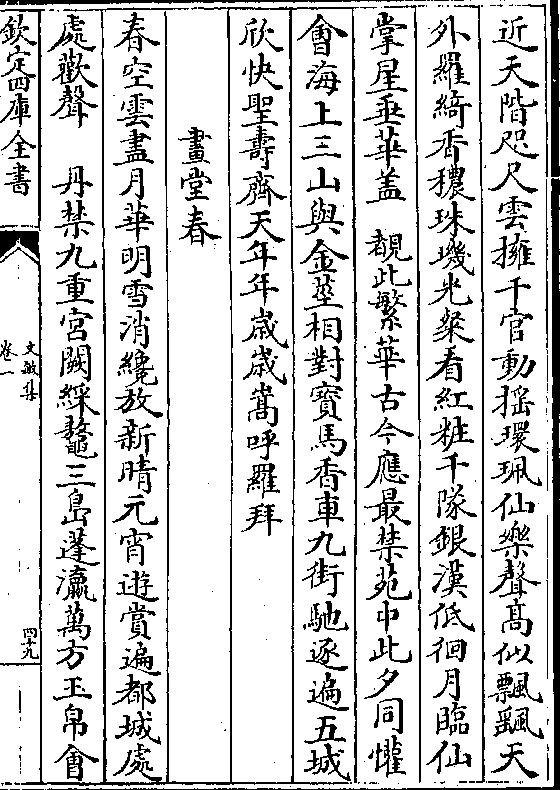 近天階咫尺雲擁千官動搖環珮仙樂聲髙似飄颻天
外羅綺香穠珠璣光粲看紅粧千隊銀漢低徊月臨仙
掌星垂華盖　覩此繁華古今應最禁苑中此夕同懽
會海上三山與金莖相對寶馬香車九街馳逐遍五城
欣快聖壽齊天年年歳歳嵩呼羅拜
畫堂春
春空雲盡月華明雪消纔放新晴元宵遊賞遍都城處
處歡聲　丹禁九重宫闕綵鼇三島蓬瀛萬方玉帛會
欽定四庫全書
文敏集
卷一
四十九